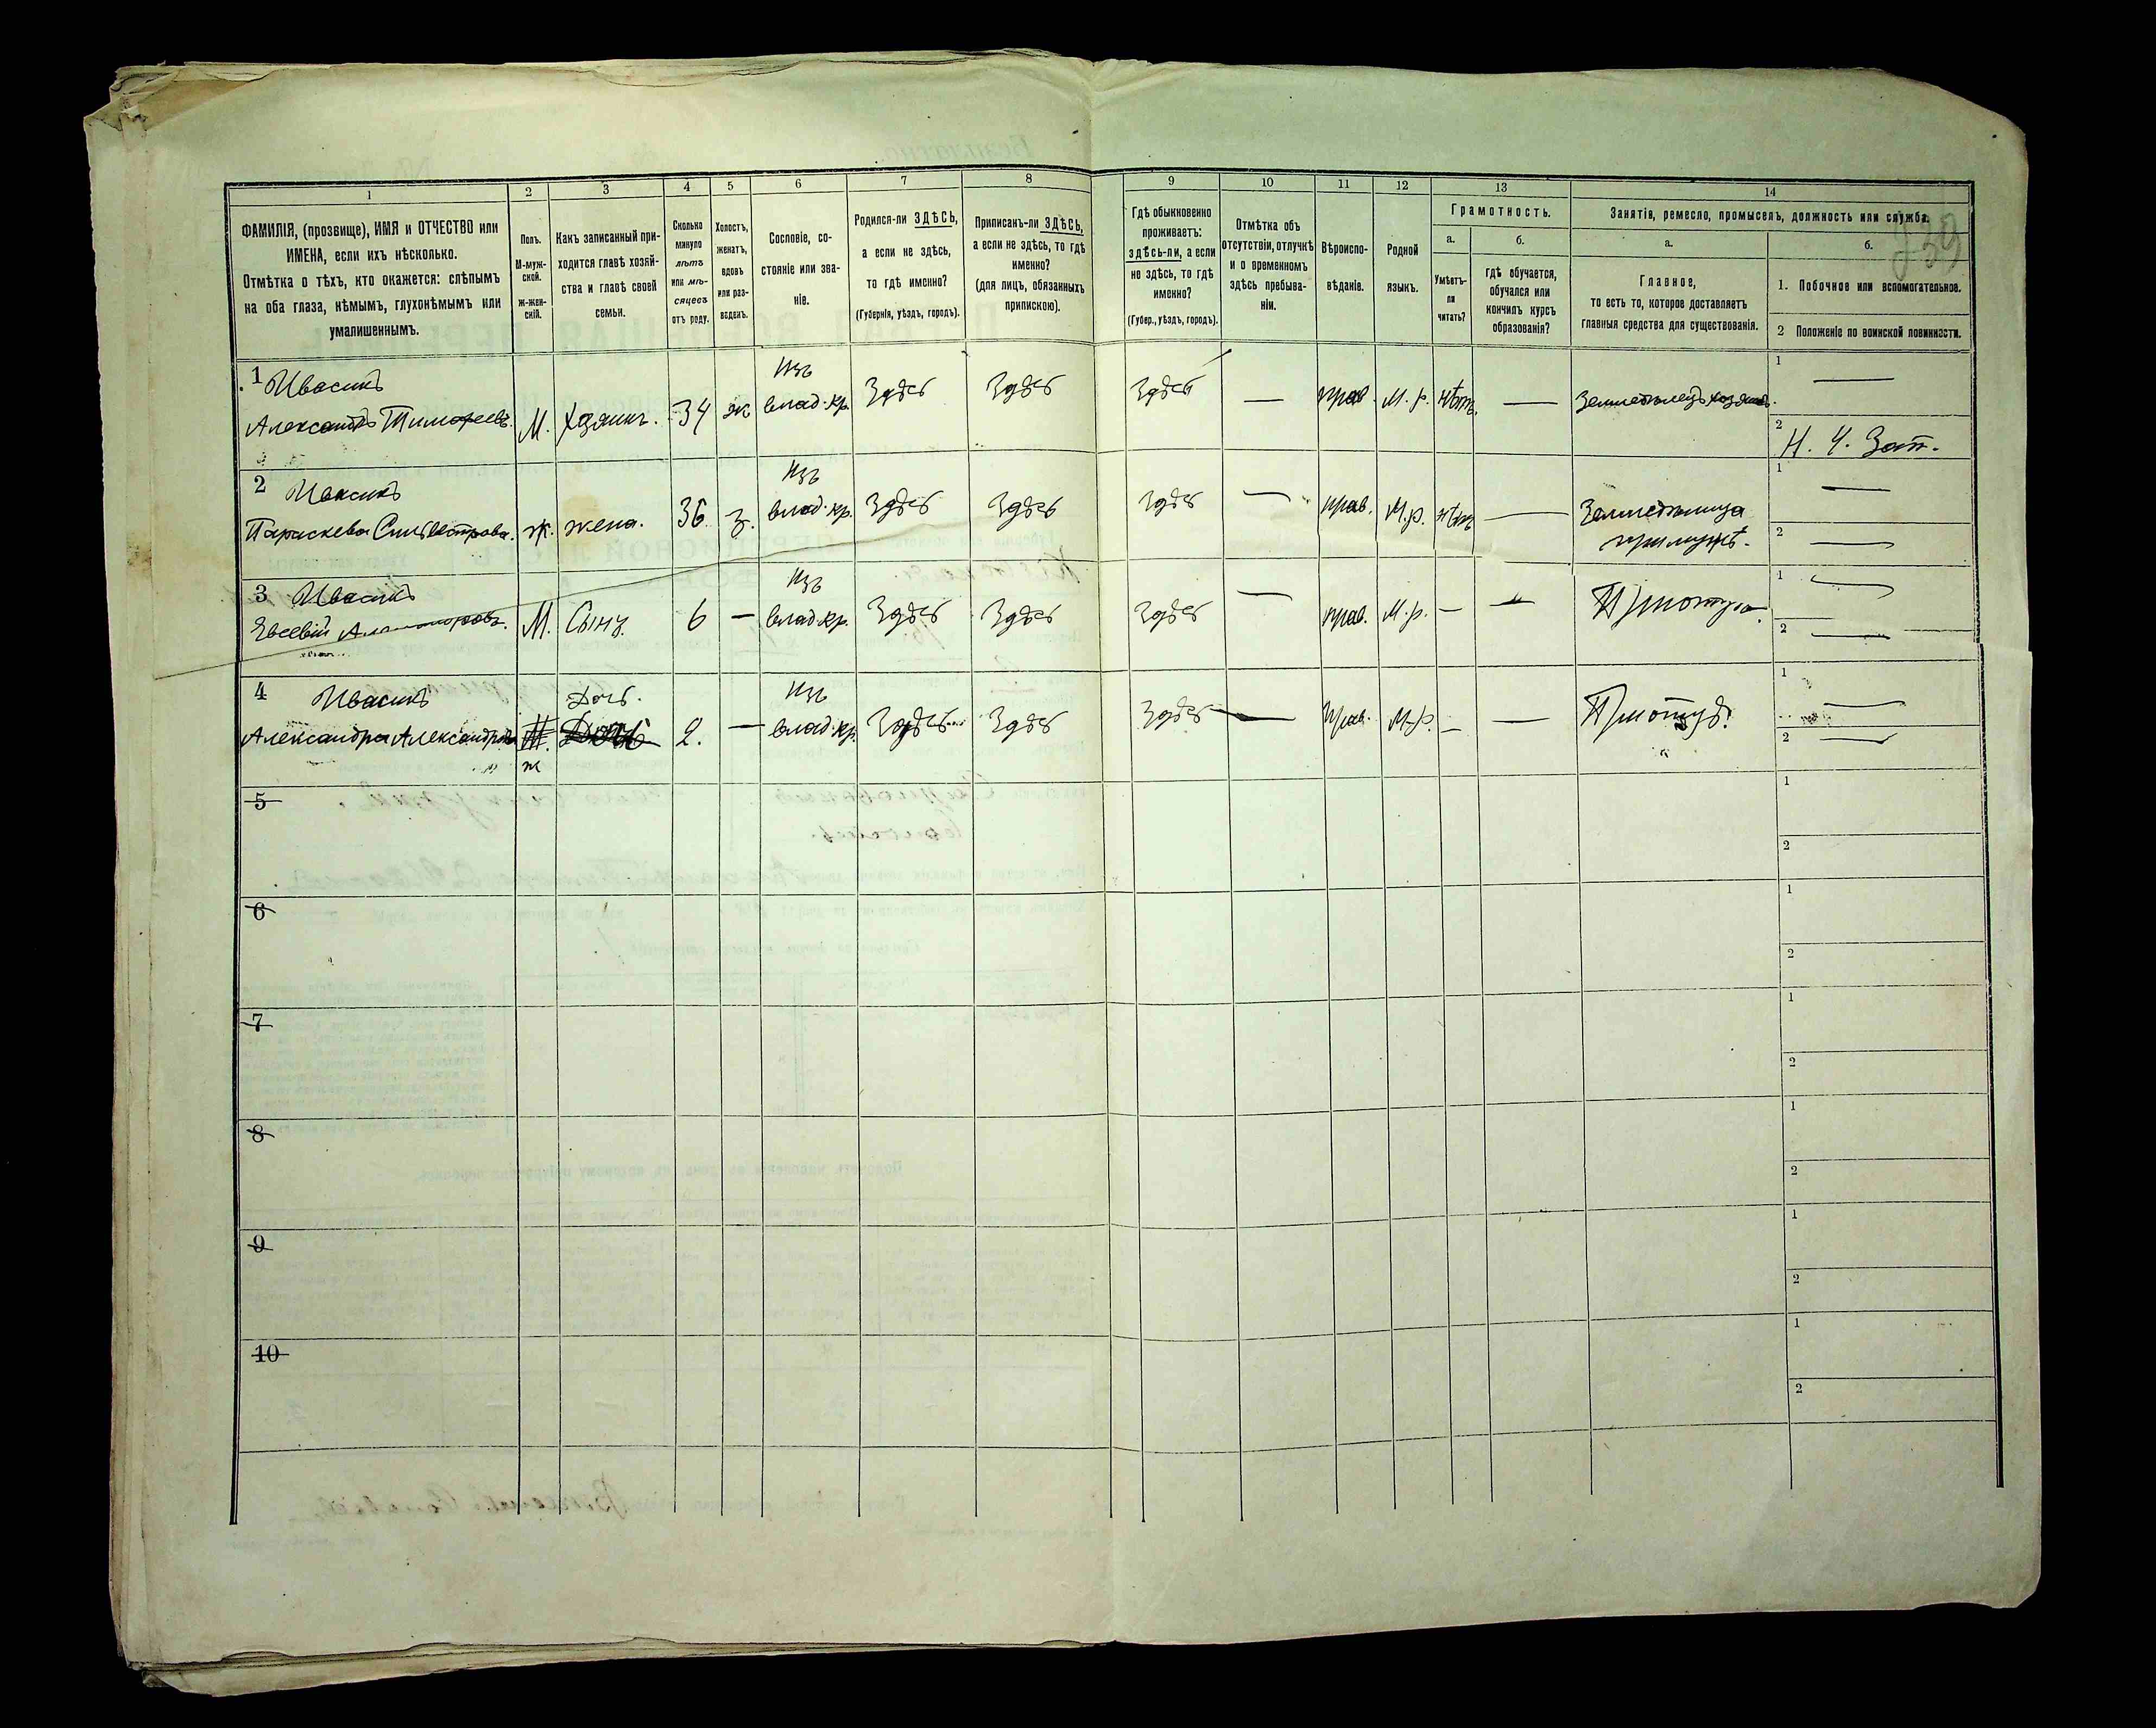 1 2 3 4 5 6 7 8 9 10 11 12 13 14
ФАМИЛІЯ, (прозвище), ИМЯ и ОТЧЕСТВО или
ИМЕНА, если ихъ нѣсколько.
Отмѣтка о тѣхъ, кто окажется: слѣпымъ
на оба глаза, нѣмымъ, глухонѣмымъ или
умалишеннымъ.
Полъ.
М-муж-
ской.
Ж-жен-
скій.
Какъ записанный при-
ходится главѣ хозяй-
ства и главѣ своей
семьи.
Сколько
минуло
лѣтъ
или мѣ-
сяцевъ
отъ роду.
Холостъ,
женатъ,
вдовъ
или раз-
веденъ.
Сословіе, со-
стояніе или зва-
ніе.
Родился-ли ЗДѢСЬ,
а если не здѣсь,
то гдѣ именно?
(Губернія, уѣздъ, городъ).
Приписанъ-ли ЗДѢСЬ,
а если не здѣсь, то гдѣ
именно?
(для лицъ, обязанныхъ
припискою).
Гдѣ обыкновенно
проживаетъ:
ЗДѢСЬ-ли, а если
не здѣсь, то гдѣ
именно?
(Губер., уѣздъ, городъ).
Отмѣтка объ
отсутствіи, отлучкѣ
и о временномъ
здѣсь пребыва-
ніи.
Вѣроиспо-
вѣданіе.
Родной
языкъ.
Грамотность.
а.
Умѣетъ-
ли
читать?
б.
гдѣ обучается,
обучался или
кончилъ курсъ
образованія?
Занятія, ремесло, промыселъ, должность или служба.
а.
Главное,
то есть то, которое доставляетъ
главныя средства для существованія.
б.
1. Побочное или вспомогательное.
2 Положеніе по воинской повинности.
1 Ивасикъ Изъ 1 —
Александръ Тимофеевъ. М. Хозяинъ. 34 ж влад. кр. Здѣсь Здѣсь Здѣсь — прав. М. р. нѣтъ. — Земледѣлецъ хозяинъ.
2 Н. Ч. Зап.
2 Ивасикъ Изъ 1 —
Параскева Сильвестрова. ж. жена. 36 з. влад. кр. Здѣсь Здѣсь Здѣсь — прав. М. р. нѣтъ — Земледѣлица
при мужѣ. 2 —
3 Ивасикъ Изъ 1 —
Евсевій М. Сынъ. 6 — влад. кр. Здѣсь Здѣсь Здѣсь — прав. М. р. — — При отцѣ. 2 —
4 Ивасикъ Дочь. Изъ 1 —
Александра Александрова 2. — влад. кр. Здѣсь Здѣсь Здѣсь — Прав. М. р. — — При отцѣ. 2 —
ж
5 1
2
6 1
2
7 1
2
8 1
2
9 1
2
10 1
2